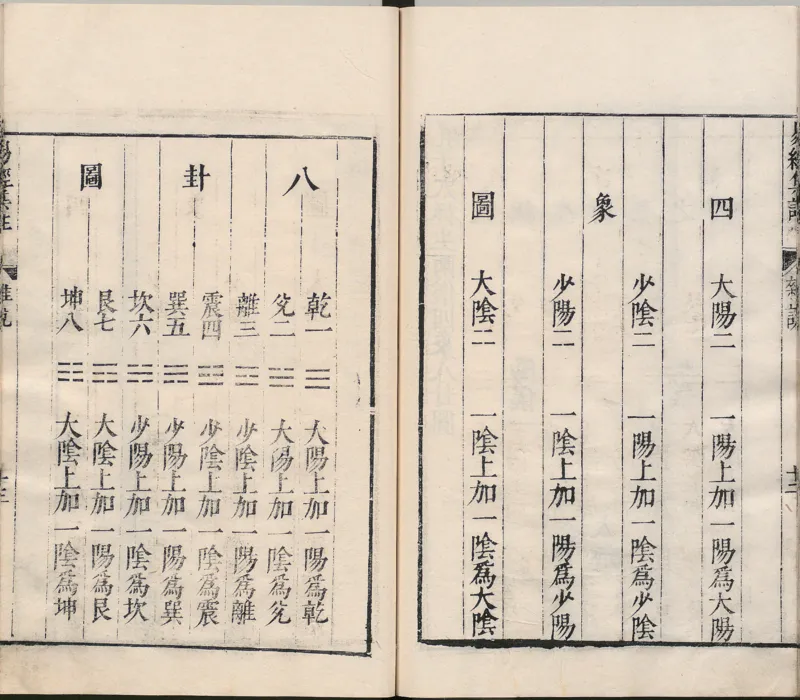 四
大陽⚌ 一陽上加一陽爲大陽
象
少陰⚍ 一陽上加一陰爲少陰
少陽⚎ 一陰上加一陽爲少陽
圖
大陰⚏ 一陰上加一陰爲大陰
八
卦
圖
乾一 ☰ 大陽上加一陽爲乾
兌二 ☱ 大陽上加一陰爲兌
離三 ☲ 少陰上加一陽爲離
震四 ☳ 少陰上加一陰爲震
巽五 ☴ 少陽上加一陽爲巽
坎六 ☵ 少陽上加一陰爲坎
艮七 ☶ 大陰上加一陽爲艮
坤八 ☷ 大陰上加一陰爲坤